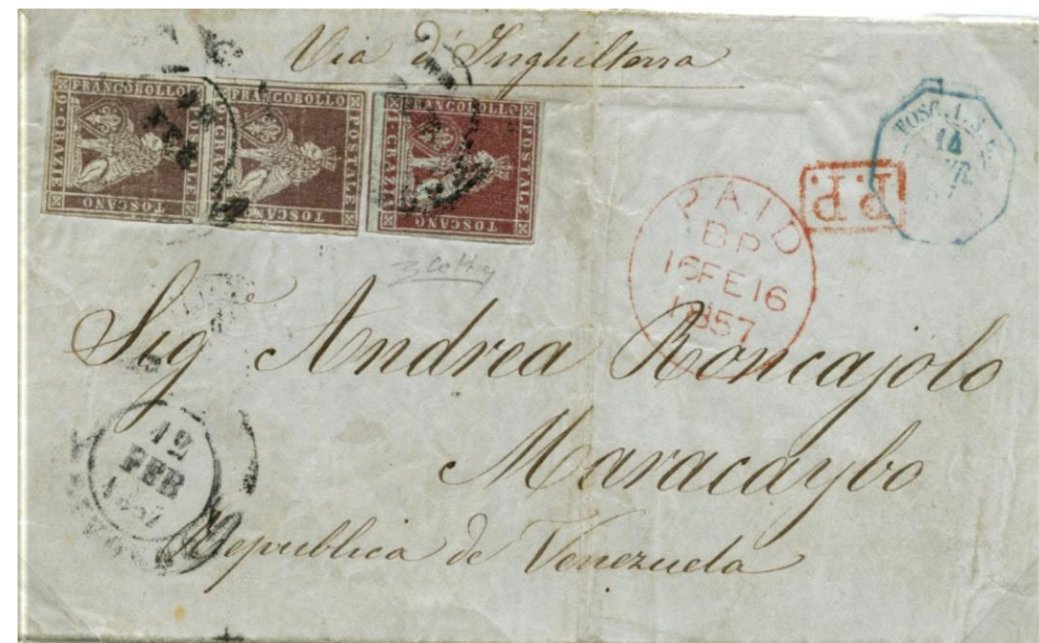 Via d'Inghilterra
FRANCOBOLLO POSTALE TOSCANO 9 CRAZIE
FRANCOBOLLO POSTALE TOSCANO 9 CRAZIE
FRANCOBOLLO POSTALE TOSCANO 1 CRAZIA
FEB
TOSC.
14
P.P.
PAID
BP
16FE16
1857
Sig Andrea Roncajolo
Maracaybo
12
FEB
1857
Republica de Venezuela